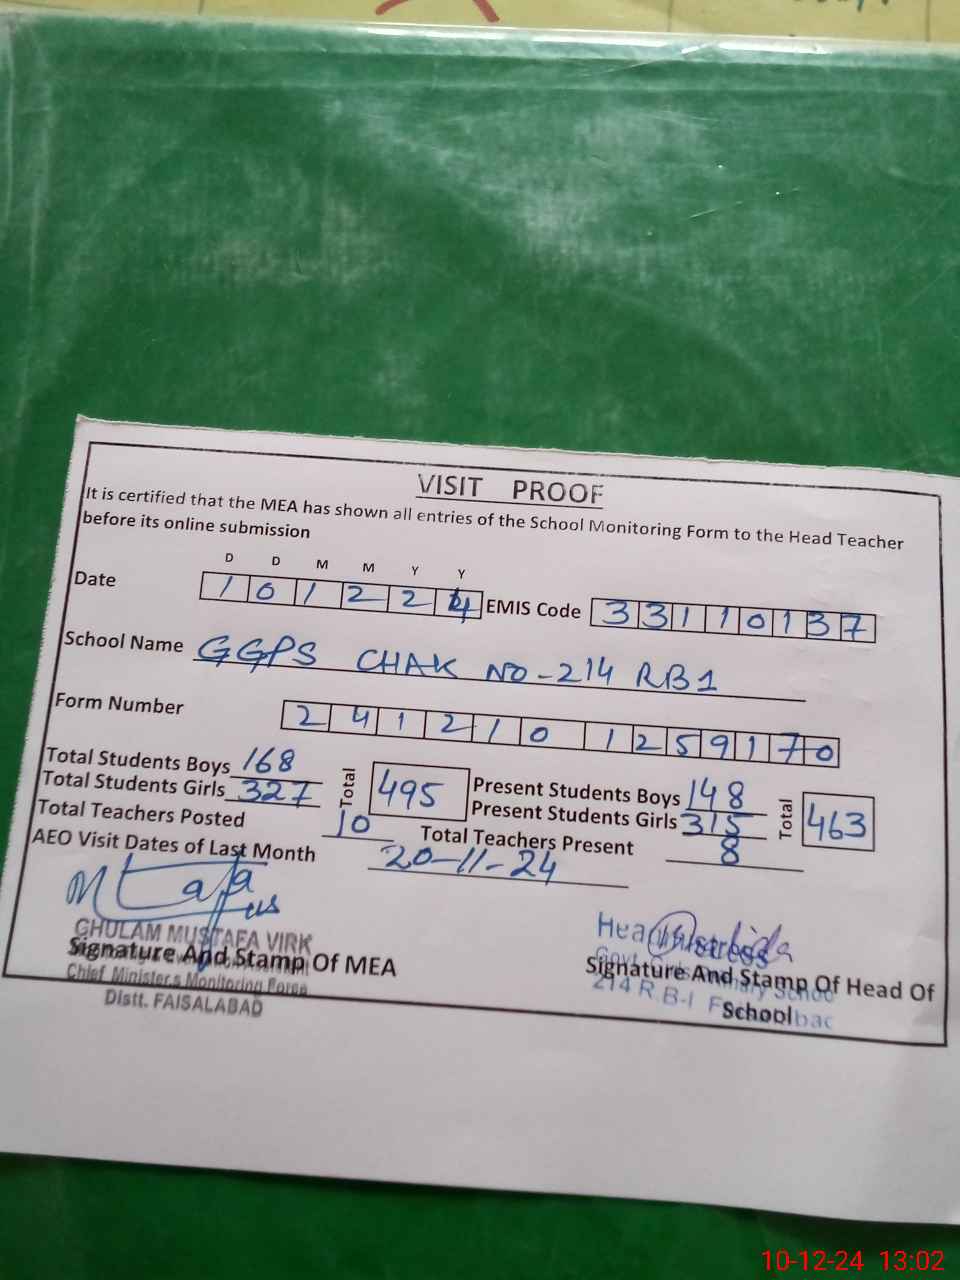 VISIT PROOF
It is certified that the MEA has shown all entries of the School Monitoring Form to the Head Teacher
before its online submission
D D M M Y Y
Date 1 0 1 2 2 4 EMIS Code 3 3 1 1 0 1 3 7
School Name GGPS CHAK NO-214 RB1
Form Number 2 4 1 2 1 0 1 2 5 9 1 7 0
Total Students Boys 168 Total 495 Present Students Boys 148 Total 463
Total Students Girls 327 Present Students Girls 315
Total Teachers Posted 10 Total Teachers Present 8
AEO Visit Dates of Last Month 20-11-24
GHULAM MUSTAFA VIRK
Signature And Stamp Of MEA
Chief Minister,s Monitoring Force
Distt. FAISALABAD
Headmistress
Signature And Stamp Of Head Of
School
214 R.B-I
10-12-24 13:02